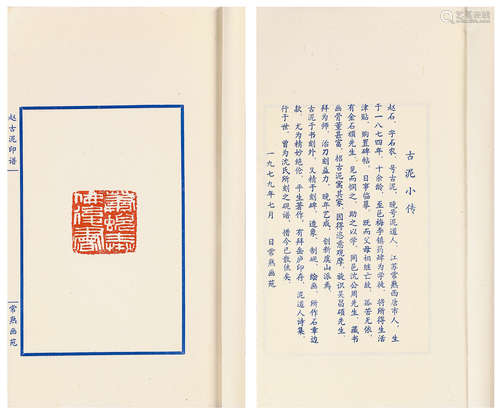 赵古泥印谱
常熟画苑
古泥小传
赵石，字石农，号古泥，晚号泥道人，江苏常熟西唐市人，生
于一八七四年，十余龄，至邑梅李镇药肆为学徒，将所得生活
津贴，购置碑帖，日事临摹，既而父母相继亡故，孤苦无依，
有金石硕先生，见而悯之，助之以学，同邑沈公周先生，藏书
画骨董甚富，招古泥寓其家，因得恣意观摩，旋识吴昌硕先生，
拜为师，治刀刻益力，晚年艺成，创新虞山派焉。
古泥于书刻外，又精于刻砖，造象，制砚，绘画，所作石章边
款，尤为精妙绝伦，平生著作，有拜缶庐印存，泥道人诗集，
行于世，曾为沈氏所刻之砚谱，惜今已散佚矣。
一九七九年七月 日常熟画苑